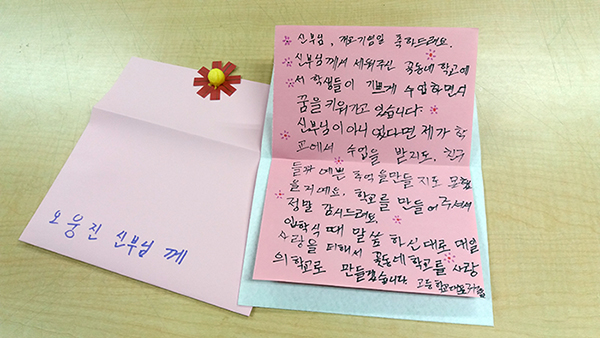 오 웅 진 신부님 께
신부님, 개교기념일 축하드려요.
신부님께서 세워주신 꽃동네 학교에
서 학생들이 기쁘게 수업하면서
꿈을 키워가고 있습니다.
신부님이 아니 었다면 제가 학
교에서 수업을 받지도, 친구
들과 예쁜 추억을만들 지도 못했
을거예요. 학교를 만들어주셔서
정말 감사드려요.
입학식 때 말씀 하신대로 매일
사랑을 더해서 꽃동네학교를 사랑
의학교로 만들겠습니다. 고등학교대표